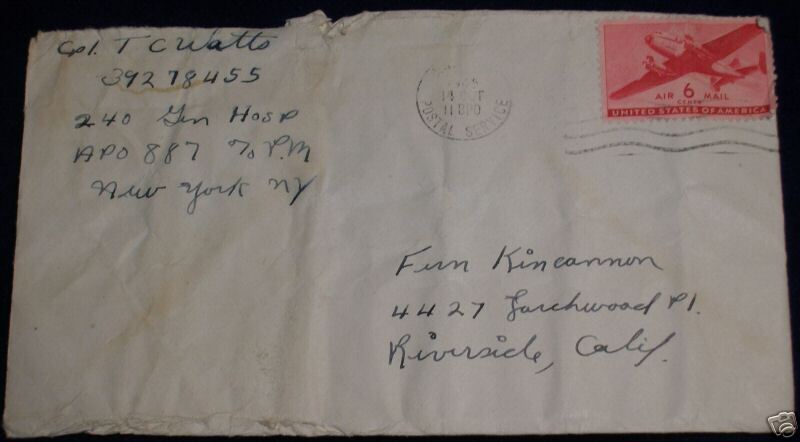 Cpl. T C Watts
39278455
240 Gen Hosp
APO 887 c/o P.M
New York NY
14 OCT
POSTAL SERVICE
AIR 6 MAIL
CENTS
UNITED STATES OF AMERICA
Fern Kincannon
4427 Larchwood Pl.
Riverside, Calif.